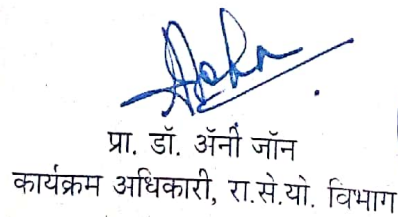 प्रा. डॉ. ॲनी जॉन
कार्यक्रम अधिकारी, रा.से.यो. विभाग